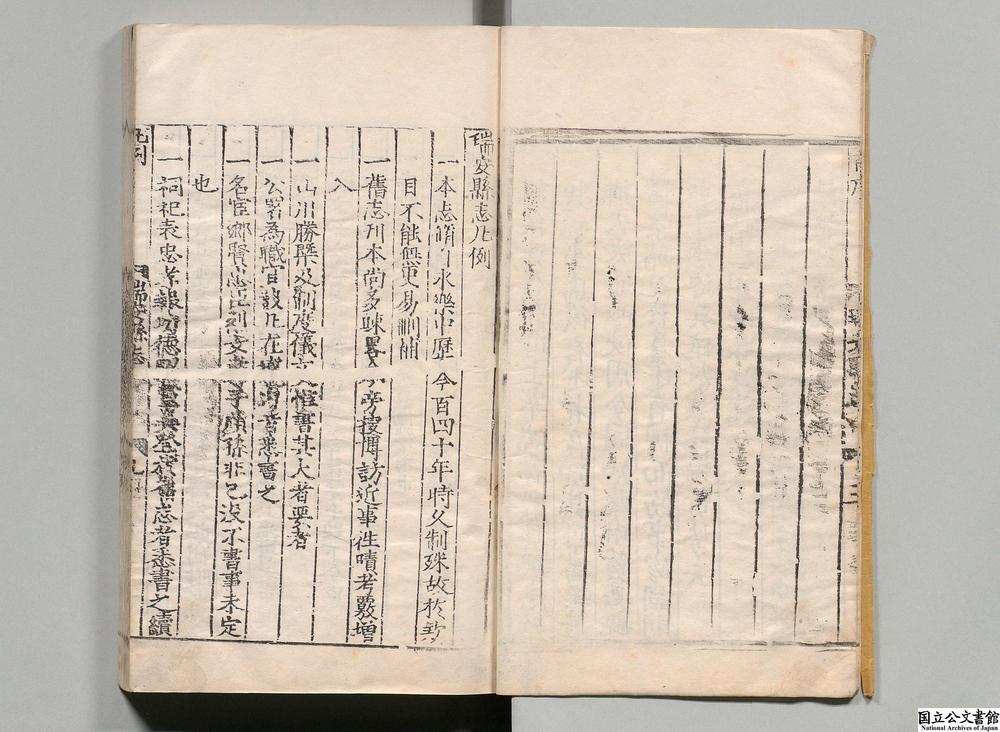 瑞安縣志凡例
一本志脩永樂中歷今百四十年時久制殊故於
目不能無更易刪補
一舊志刊本尚多疎畧今旁搜博訪近事往牘考覈增
入
一山川勝槩及制度儀文惟書其大者要者
一公署爲職官設凡在者悉書之
一名宦鄉賢忠臣列女孝子順孫非已沒不書事未定
也
一祠祀表忠孝報功德志者悉書之續
凡例
瑞安縣志
国立公文書館
National Archives of Japan